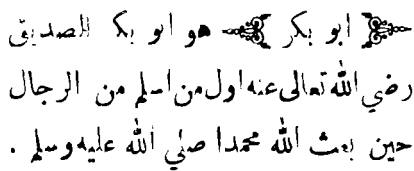 ابو بكر هو ابو بكر الصديق
رضي الله تعالى عنه اول من اسلم من الرجال
حين بعث الله محمدا صلي الله عليه وسلم .